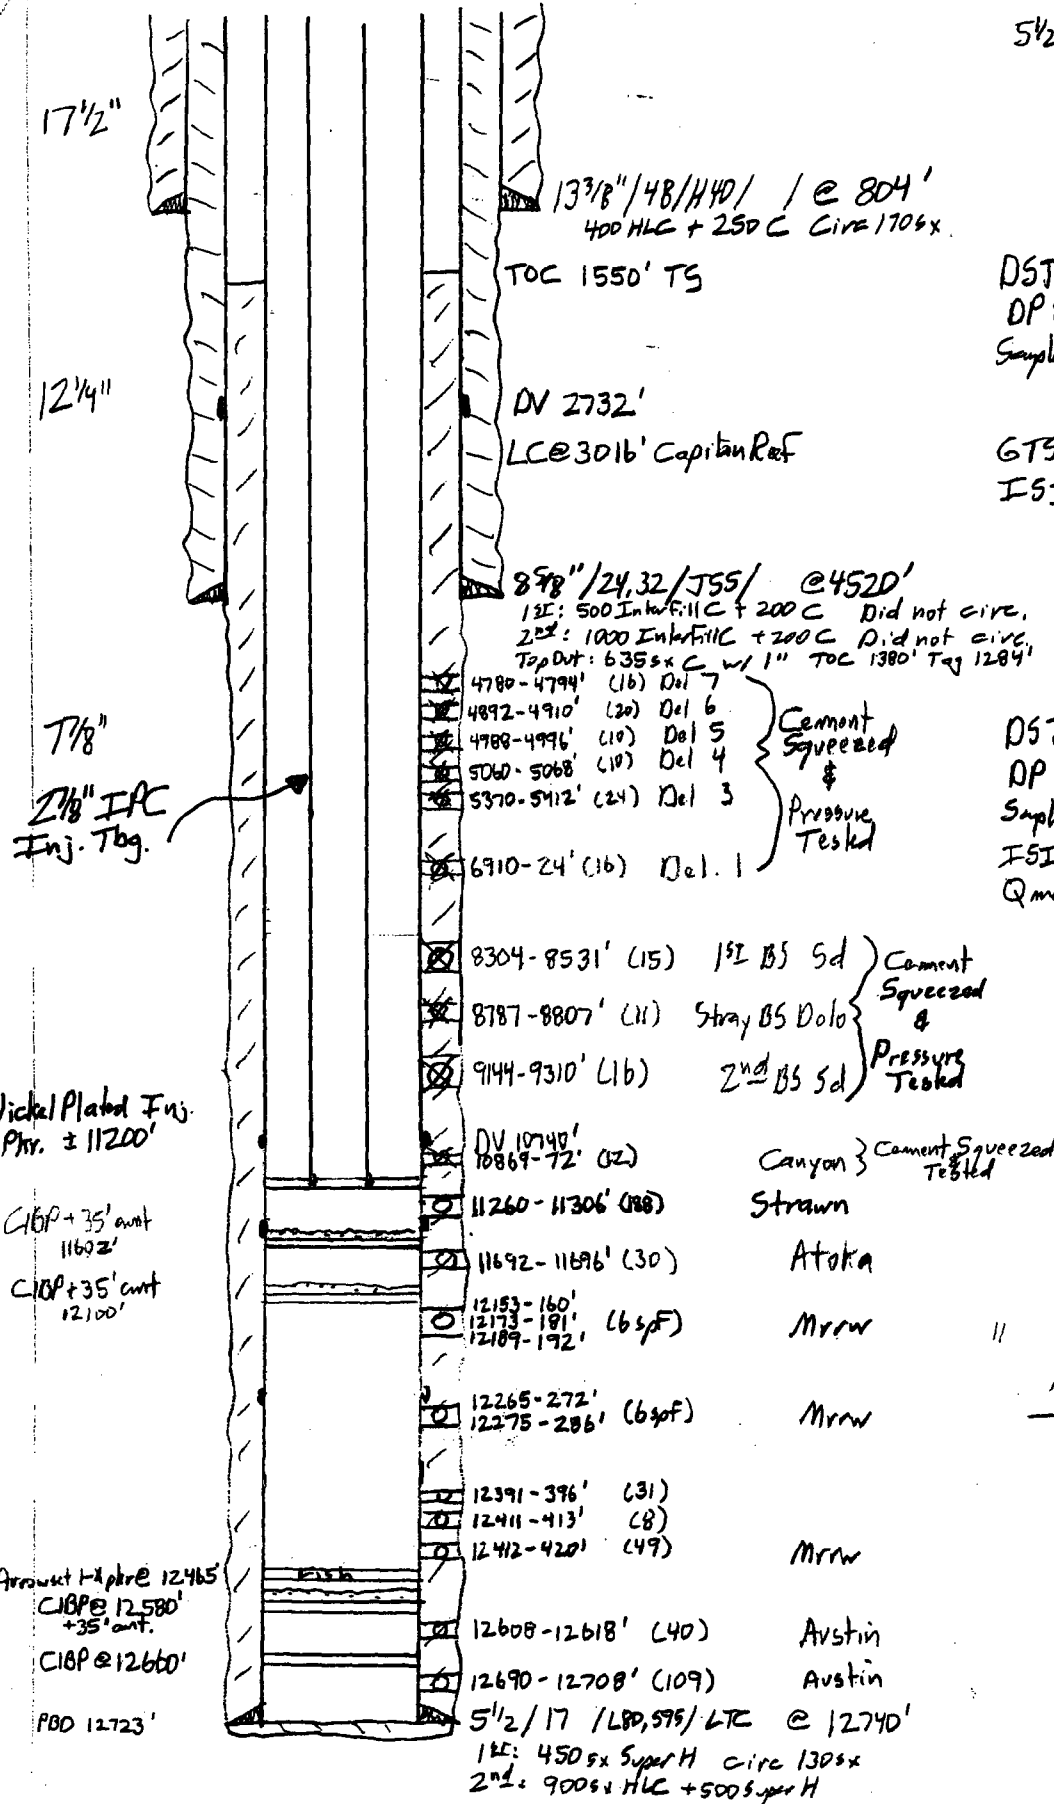 5 1/2
17 1/2"
13 3/8"/48/H40/ / @ 804'
400 HLC + 250 C Circ 170 sx.
TOC 1550' TS
DST
DP
Sampl
12 1/4"
DV 2732'
LC @ 3016' Capitan Reef
GTS
ISI
8 5/8"/24,32/J55/ @ 4520'
1st: 500 InterFill C + 200 C Did not circ.
2nd: 1000 InterFill C + 200 C Did not circ.
Top Out: 635 sx C w/ 1" TOC 1380' Tag 1284'
4780-4794' (16) Del 7
4892-4910' (20) Del 6
4988-4996' (10) Del 5
5060-5068' (10) Del 4
5370-5412' (24) Del 3
6910-24' (16) Del. 1
Cement
Squeezed
&
Pressure
Tested
7 7/8"
2 7/8" IPC
Inj. Tbg.
DST
DP
Sampl
ISI
Q m
8304-8531' (15) 1st BS Sd
8787-8807' (11) Stray BS Dolo
9144-9310' (16) 2nd BS Sd
Cement
Squeezed
&
Pressure
Tested
Nickel Plated Inj.
Pkr. ± 11200'
DV 10740'
10869-72' (12) Canyon } Cement Squeezed
Tested
11260-11306' (188) Strawn
CIBP + 35' cmt
11602'
11692-11696' (30) Atoka
CIBP + 35' cmt
12,100'
12153-160'
12173-181' (6 spf) Mrrw
12189-192'
11
12265-272'
12275-286' (6 spf) Mrrw
12391-396' (31)
12411-413' (8)
12412-420' (49) Mrrw
Arrowset 1-X pkr @ 12465'
Fish
CIBP @ 12580'
+35' cmt.
12608-12618' (40) Austin
CIBP @ 12660'
12690-12708' (109) Austin
PBD 12723'
5 1/2/17 /L80,S95/LTC @ 12740'
1st: 450 sx Super H circ 130 sx
2nd: 900 sx HLC + 500 Super H